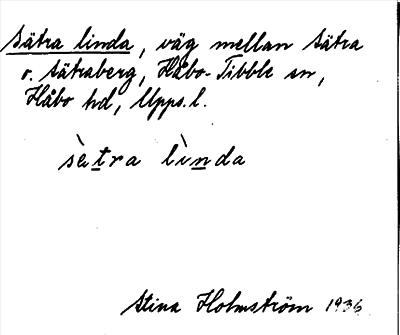 Sätra linda, väg mellan Sätra
o. Sätraberg, Håbo-Tibble sn,
Håbo hd, Upps.l.
sὲtra lìnda
Stina Holmström 1936